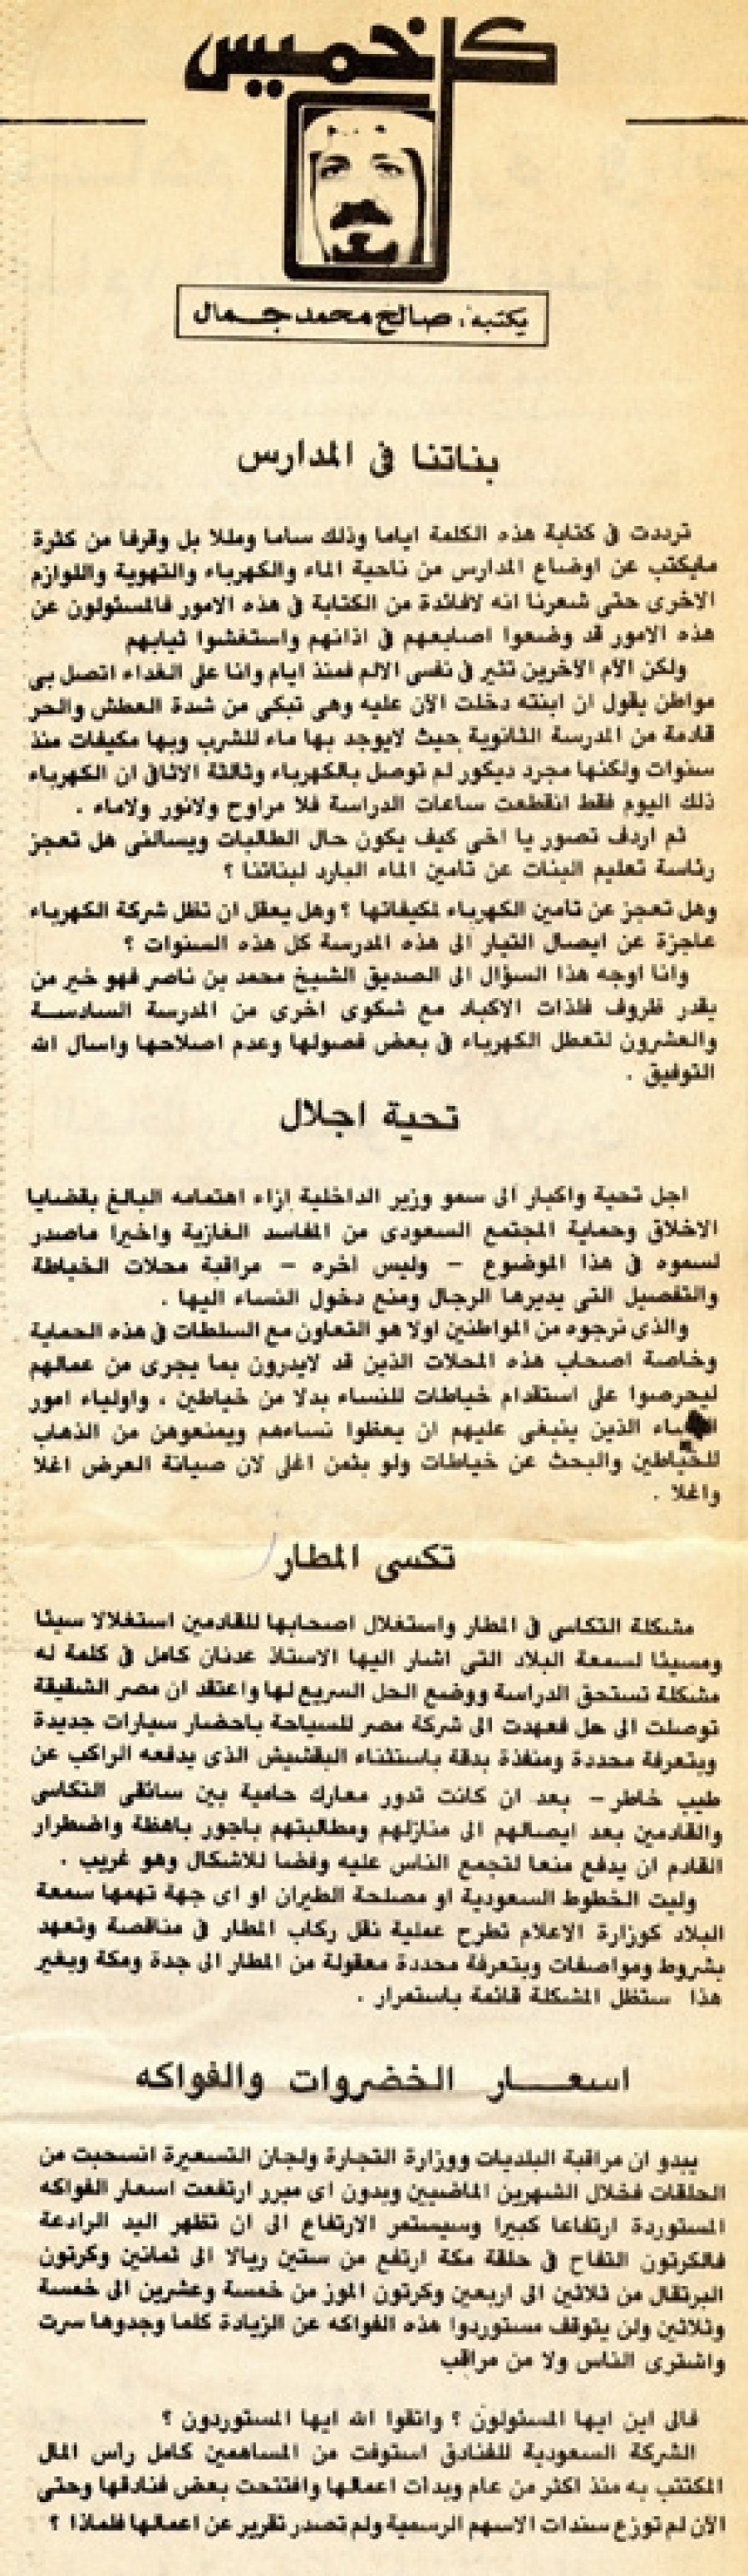 كل خميس
يكتبه: صالح محمد جمال
بناتنا فى المدارس
ترددت فى كتابة هذه الكلمة اياما وذلك ساما ومللا بل وقرفا من كثرة
مايكتب عن اوضاع المدارس من ناحية الماء والكهرباء والتهوية واللوازم
الاخرى حتى شعرنا انه لافائدة من الكتابة فى هذه الامور فالمسئولون عن
هذه الامور قد وضعوا اصابعهم فى اذانهم واستغشوا ثيابهم
ولكن الآم الآخرين تثير فى نفسى الالم فمنذ ايام وانا على الغداء اتصل بى
مواطن يقول ان ابنته دخلت الآن عليه وهى تبكى من شدة العطش والحر
قادمة من المدرسة الثانوية حيث لايوجد بها ماء للشرب وبها مكيفات منذ
سنوات ولكنها مجرد ديكور لم توصل بالكهرباء وثالثة الاثافى ان الكهرباء
ذلك اليوم فقط انقطعت ساعات الدراسة فلا مراوح ولانور ولاماء .
ثم اردف تصور يا اخى كيف يكون حال الطالبات ويسالنى هل تعجز
رئاسة تعليم البنات عن تأمين الماء البارد لبناتنا ؟
وهل تعجز عن تأمين الكهرباء لمكيفاتها ؟ وهل يعقل ان تظل شركة الكهرباء
عاجزة عن ايصال التيار الى هذه المدرسة كل هذه السنوات ؟
وانا اوجه هذا السؤال الى الصديق الشيخ محمد بن ناصر فهو خير من
يقدر ظروف فلذات الاكباد مع شكوى اخرى من المدرسة السادسة
والعشرون لتعطل الكهرباء فى بعض فصولها وعدم اصلاحها واسال الله
التوفيق .
تحية اجلال
اجل تحية واكبار الى سمو وزير الداخلية إزاء اهتمامه البالغ بقضايا
الاخلاق وحماية المجتمع السعودى من المفاسد الغازية واخيرا ماصدر
لسموه فى هذا الموضوع – وليس آخره – مراقبة محلات الخياطة
والتفصيل التى يديرها الرجال ومنع دخول النساء اليها .
والذى نرجوه من المواطنين اولا هو التعاون مع السلطات فى هذه الحماية
وخاصة اصحاب هذه المحلات الذين قد لايدرون بما يجرى من عمالهم
ليحرصوا على استقدام خياطات للنساء بدلا من خياطين ، واولياء امور
النساء الذين ينبغى عليهم ان يعظوا نساءهم ويمنعوهن من الذهاب
للخياطين والبحث عن خياطات ولو بثمن اغلى لان صيانة العرض اغلا
واغلا .
تكسى المطار
مشكلة التكاسى فى المطار واستغلال اصحابها للقادمين استغلالا سيئا
ومسيئا لسمعة البلاد التى اشار اليها الاستاذ عدنان كامل فى كلمة له
مشكلة تستحق الدراسة ووضع الحل السريع لها واعتقد ان مصر الشقيقة
توصلت الى حل فعهدت الى شركة مصر للسياحة باحضار سيارات جديدة
وبتعرفة محددة ومنفذة بدقة باستثناء البقشيش الذى يدفعه الراكب عن
طيب خاطر – بعد ان كانت تدور معارك حامية بين سائقى التكاسى
والقادمين بعد ايصالهم الى منازلهم ومطالبتهم باجور باهظة واضطرار
القادم ان يدفع منعا لتجمع الناس عليه وفضا للاشكال وهو غريب .
وليت الخطوط السعودية او مصلحة الطيران او اى جهة تهمها سمعة
البلاد كوزارة الاعلام تطرح عملية نقل ركاب المطار فى مناقصة وتعهد
بشروط ومواصفات وبتعرفة محددة معقولة من المطار الى جدة ومكة وبغير
هذا ستظل المشكلة قائمة باستمرار .
اسعـــار الخضروات والفواكه
يبدو ان مراقبة البلديات ووزارة التجارة ولجان التسعيرة انسحبت من
الحلقات فخلال الشهرين الماضيين وبدون اى مبرر ارتفعت اسعار الفواكه
المستوردة ارتفاعا كبيرا وسيستمر الارتفاع الى ان تظهر اليد الرادعة
فالكرتون التفاح فى حلقة مكة ارتفع من ستين ريالا الى ثمانين وكرتون
البرتقال من ثلاثين الى اربعين وكرتون الموز من خمسة وعشرين الى خمسة
وثلاثين ولن يتوقف مستوردوا هذه الفواكه عن الزيادة كلما وجدوها سرت
واشترى الناس ولا من مراقب
فالى اين ايها المسئولون ؟ واتقوا الله ايها المستوردون ؟
الشركة السعودية للفنادق استوفت من المساهمين كامل رأس المال
المكتتب به منذ اكثر من عام وبدأت اعمالها وافتتحت بعض فنادقها وحتى
الآن لم توزع سندات الاسهم الرسمية ولم تصدر تقرير عن اعمالها فلماذا ؟